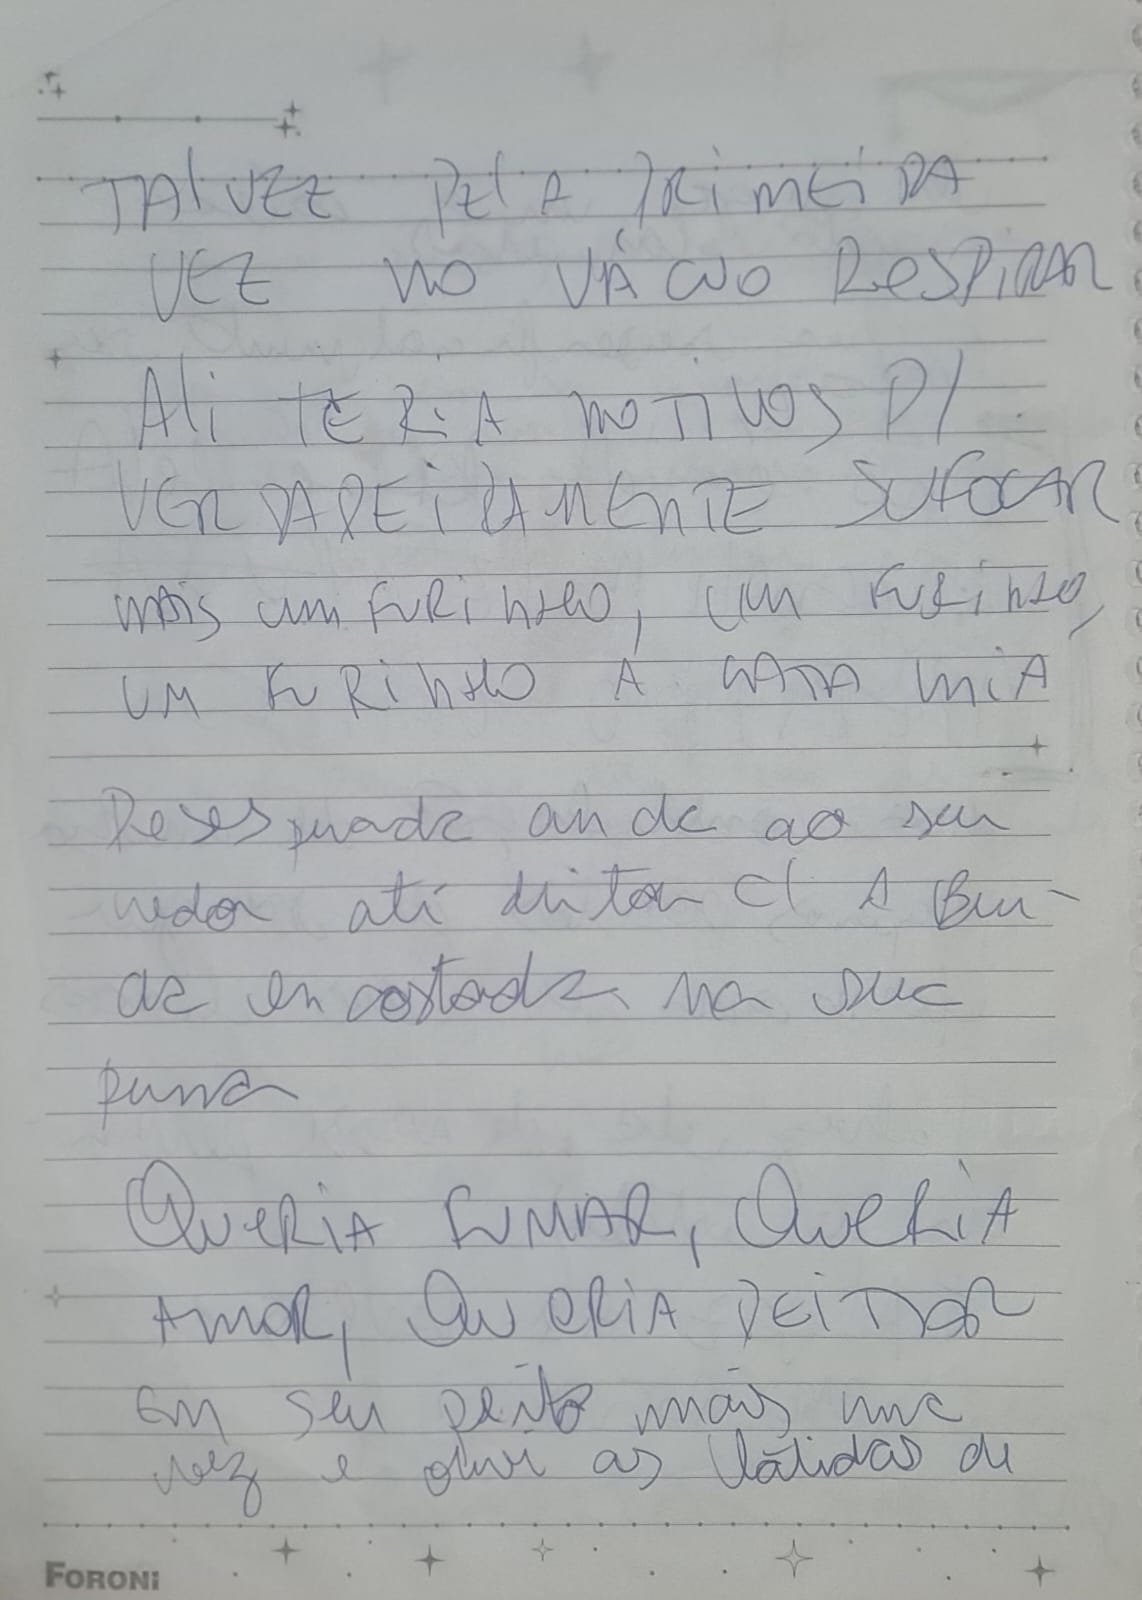 TALVEZ PELA PRIMEIRA
VEZ NO VÁCUO RESPIRAR
Ali TERIA MOTIVOS P/
VERDADEIRAMENTE SUFOCAR
mais um FURINHO, um FURINHO,
UM FURINHO A GATA MIA
Desesperada anda ao seu
redor até deitar c/ A Bun-
da encostada na sua
perna
QUERIA FUMAR, QUERIA
AMOR, QUERIA DEITAR
Em seu peito mais uma
vez e ouvi as batidas de
FORONI